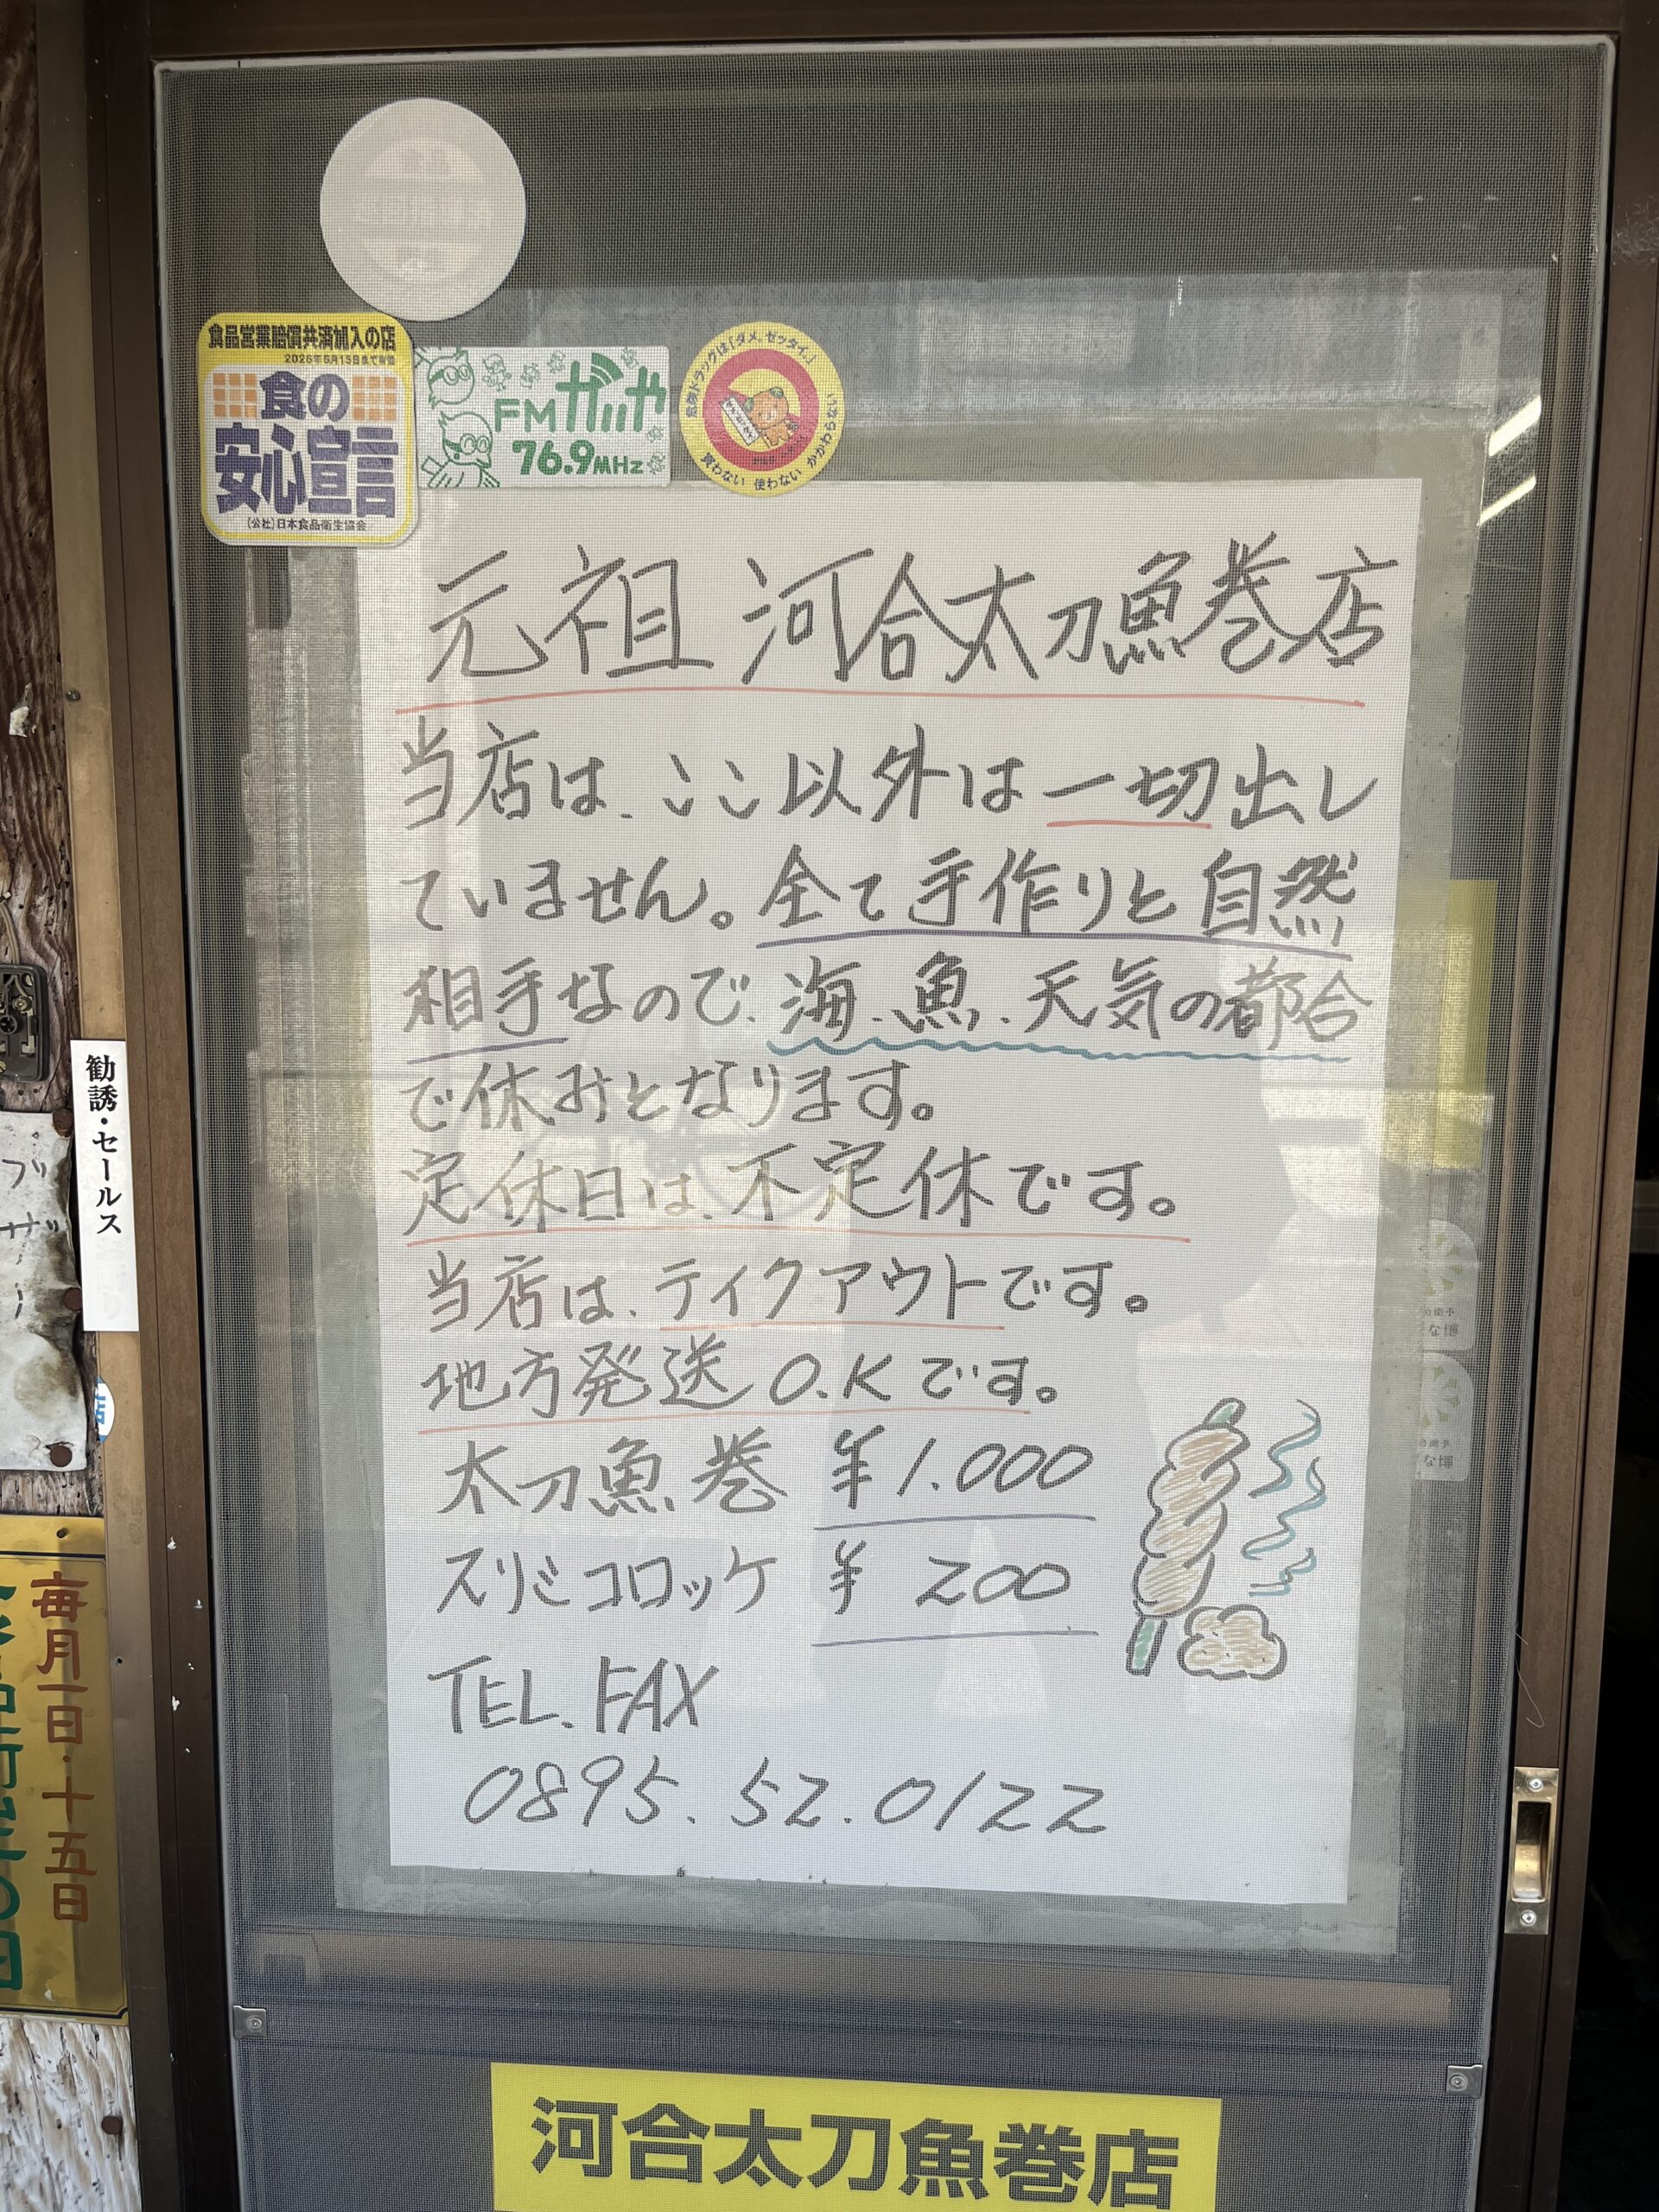 食品営業賠償共済加入の店
2026年6月15日まで有効
食の
安心宣言
(公社)日本食品衛生協会
FMがいや
76.9MHz
危険ドラッグは「ダメ。ゼッタイ。」
買わない 使わない かかわらない
元祖 河合太刀魚巻店
当店は、ここ以外は一切出し
ていません。全て手作りと自然
相手なので、海、魚、天気の都合
で休みとなります。
定休日は、不定休です。
当店は、テイクアウトです。
地方発送O.Kです。
太刀魚巻 ¥1.000
スリミコロッケ ¥200
TEL.FAX
0895.52.0122
河合太刀魚巻店
勧誘・セールス
ブザー
毎月一日・十五日
店
南予
な博
南予
な博